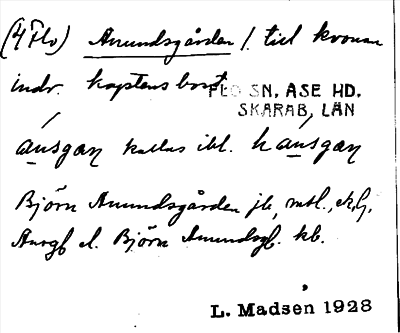 (4 Flo) Amundsgården /. till kronan
indr. kaptens bost.
FLO SN, ASE HD.
SKARAB, LÄN
áusgaɳ kallas ibl. háusgaɳ
Björn Amundsgården jb, mtl.,
Amgf l. Björn Amundsgf. kb.
L. Madsen 1928